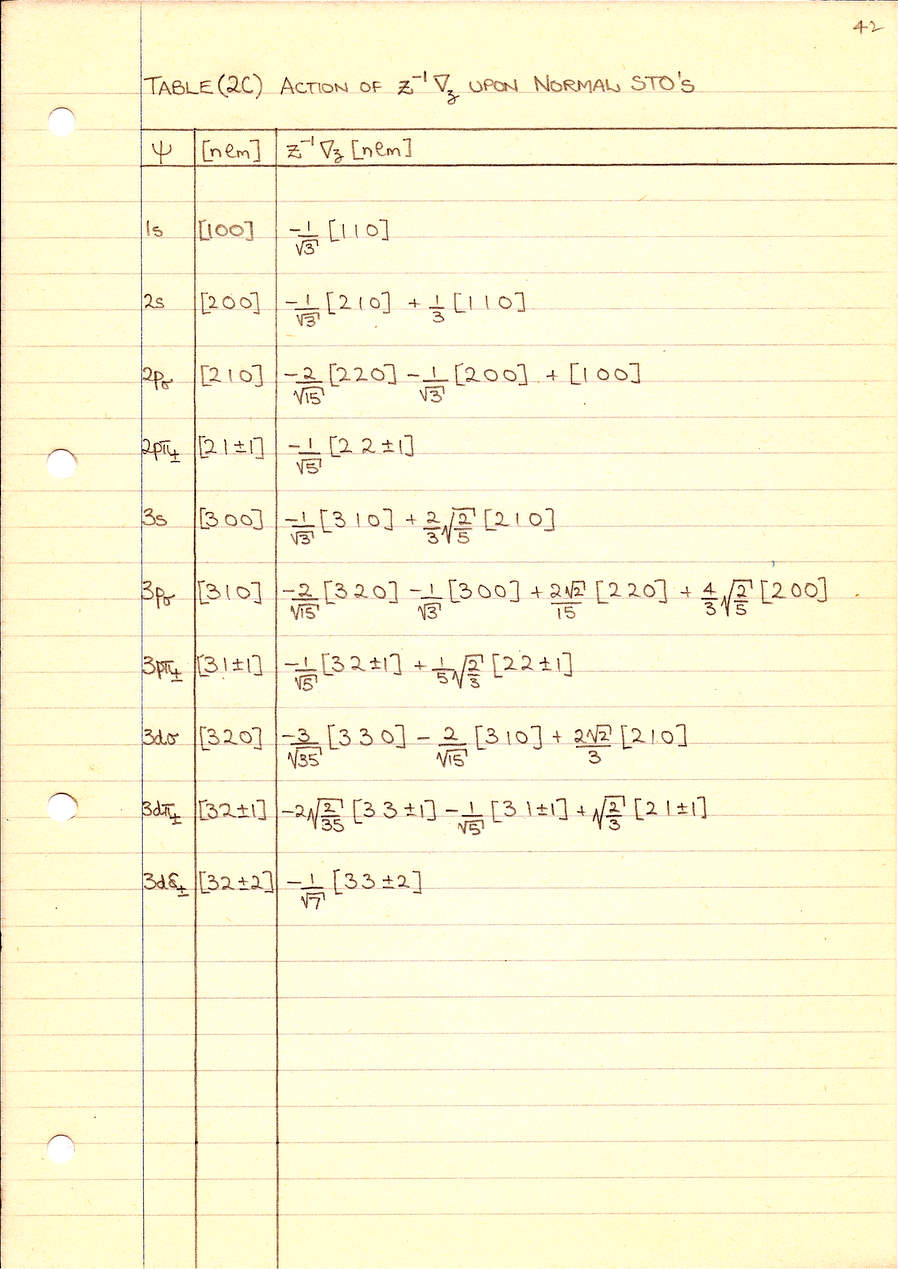 42
TABLE (2C) ACTION OF Z⁻¹∇z UPON NORMAL STO'S
Ψ [nlm] Z⁻¹∇z [nlm]
1s [100] -1/√3 [110]
2s [200] -1/√3 [210] + 1/3 [110]
2pσ [210] -2/√15 [220] - 1/√3 [200] + [100]
2pπ± [21±1] -1/√5 [22±1]
3s [300] -1/√3 [310] + 2/3 √(2/5) [210]
3pσ [310] -2/√15 [320] - 1/√3 [300] + 2√2/15 [220] + 4/3 √(2/5) [200]
3pπ± [31±1] -1/√5 [32±1] + 1/5 √(2/3) [22±1]
3dσ [320] -3/√35 [330] - 2/√15 [310] + 2√2/3 [210]
3dπ± [32±1] -2√(2/35) [33±1] - 1/√5 [31±1] + √(2/3) [21±1]
3dδ± [32±2] -1/√7 [33±2]